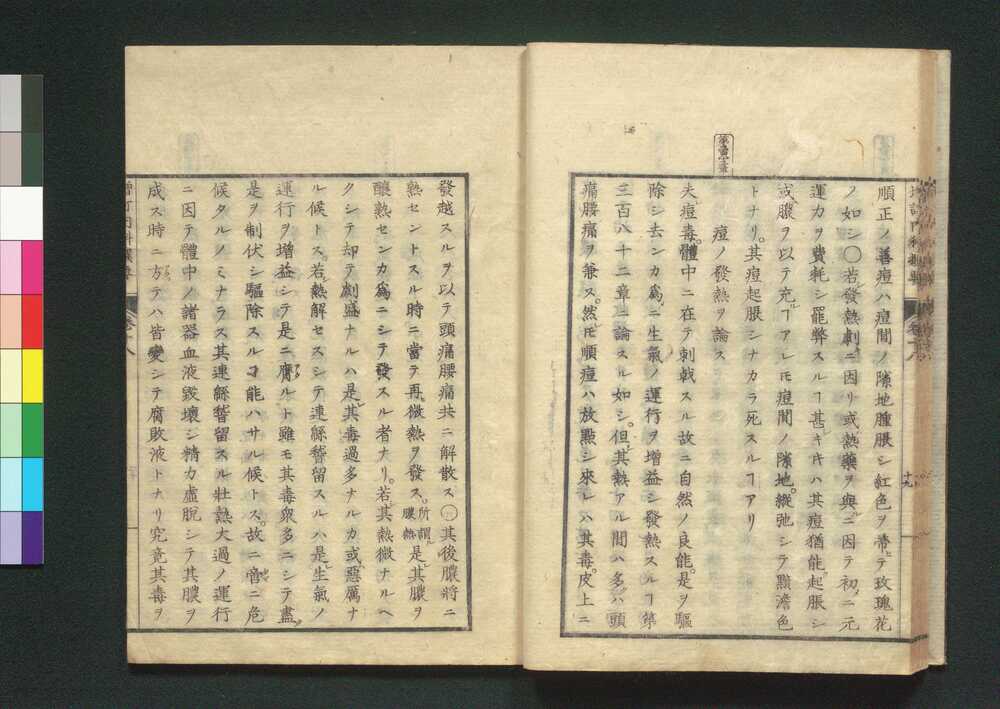 順正ノ善痘ハ痘間ノ隙地腫脹シ紅色ヲ帶テ玫瑰花
ノ如シ〇若發熱劇ニ因リ或熱藥ヲ與ニ因テ初ニ元
運力ヲ費耗シ罷弊スルヿ甚キキハ其痘猶能起脹シ
或膿ヲ以テ充ヿアレモ痘間ノ隙地緩弛シテ黯澹色
トナリ。其痘起脹シナカラ死スルヿアリ
痘ノ發熱ヲ論ス
夫痘毒。體中ニ在テ刺戟スル故ニ自然ノ良能。是ヲ驅
除シ去ンカ為。ニ生氣ノ運行ヲ增益シ發熱スルヿ第
三百八十二章ニ論スル如シ。但其熱アル間ハ多ハ頭
痛腰痛ヲ兼ス。然モ順痘ハ放點シ來レハ其毒。皮上ニ
發越スルヲ以テ頭痛腰痛共ニ解散ス〇其後膿將ニ
熱セントスル時ニ當テ再。微熱ヲ發ス。所謂膿熱是其膿ヲ
釀熟センカ為ニシテ發スル者ナリ。若其熱微ナルヘ
クシテ却テ劇盛ナルハ是其毒過多ナルカ或惡厲ナ
ル候トス。若熱解セスシテ連緜稽留スルハ是生氣ノ
運行ヲ增益シテ是ニ腐ルト雖モ其毒衆多ニシテ盡
是ヲ制伏シ驅除スルヿ能ハサル候トス。故ニ啻ニ危
候タルノミナラス其連緜稽留スル壯熱大過ノ運行
ニ因テ體中ノ諸器血液毀壞シ精力虛脫シテ其膿ヲ
成ス時ニ方テハ皆變シテ腐敗液トナリ究竟其毒ヲ